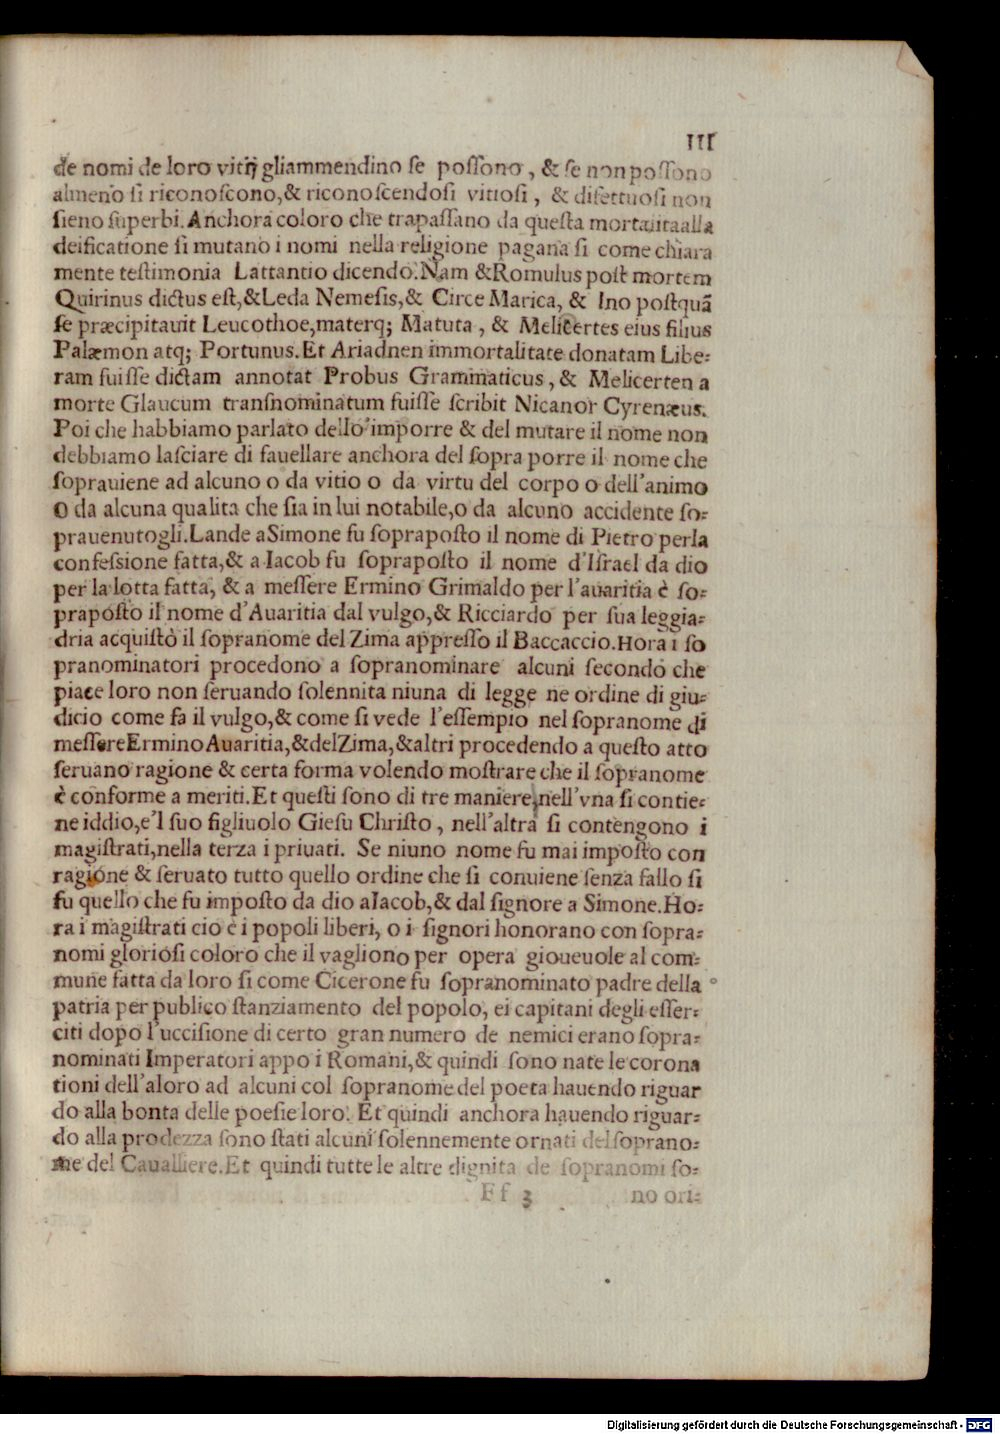 III
de nomi de loro vitij gliammendino se possono, & se non possono
almeno si riconoscono,& riconoscendosi vitiosi, & difettuosi non
sieno superbi.Anchora coloro che trapassano da questa mortalita alla
deificatione si mutano i nomi nella religione pagana si come chiara
mente testimonia Lattantio dicendo.Nam &Romulus post mortem
Quirinus dictus est,&Leda Nemesis,& Circe Marica, & Ino postquã
se præcipitauit Leucothoe,materq; Matuta, & Melicertes eius filius
Palæmon atq; Portunus.Et Ariadnen immortalitate donatam Libe-
ram fuisse dictam annotat Probus Grammaticus, & Melicerten a
morte Glaucum transnominatum fuisse scribit Nicanor Cyrenæus.
Poi che habbiamo parlato dello'mporre & del mutare il nome non
debbiamo lasciare di fauellare anchora del sopra porre il nome che
soprauiene ad alcuno o da vitio o da virtu del corpo o dell'animo
O da alcuna qualita che sia in lui notabile,o da alcuno accidente so-
prauenutogli.Lande aSimone fu sopraposto il nome di Pietro perla
confessione fatta,& a Iacob fu sopraposto il nome d'Israel da dio
per la lotta fatta, & a messere Ermino Grimaldo per l'auaritia è so-
praposto il nome d'Auaritia dal vulgo,& Ricciardo per sua leggia-
dria acquistò il sopranome del Zima appresso il Baccaccio.Hora i so
pranominatori procedono a sopranominare alcuni secondo che
piace loro non seruando solennita niuna di legge ne ordine di giu-
dicio come fa il vulgo,& come si vede l'essempio nel sopranome di
messereErminoAuaritia,&delZima,&altri procedendo a questo atto
seruano ragione & certa forma volendo mostrare che il sopranome
è conforme a meriti.Et questi sono di tre maniere,nell'vna si contie-
ne iddio,e'l suo figliuolo Giesu Christo, nell'altra si contengono i
magistrati,nella terza i priuati. Se niuno nome fu mai imposto con
ragione & seruato tutto quello ordine che si conuiene senza fallo si
fu quello che fu imposto da dio aIacob,& dal signore a Simone.Ho-
ra i magistrati cio è i popoli liberi, o i signori honorano con sopra-
nomi gloriosi coloro che il vagliono per opera gioueuole al com-
mune fatta da loro si come Cicerone fu sopranominato padre della
patria per publico stanziamento del popolo, ei capitani degli esser-
citi dopo l'uccisione di certo gran numero de nemici erano sopra-
nominati Imperatori appo i Romani,& quindi sono nate le corona
tioni dell'aloro ad alcuni col sopranome del poeta hauendo riguar
do alla bonta delle poesie loro. Et quindi anchora hauendo riguar-
do alla prodezza sono stati alcuni solennemente ornati del soprano-
me del Caualliere.Et quindi tutte le altre dignita de sopranomi so-
Ff 3 no ori-
Digitalisierung gefördert durch die Deutsche Forschungsgemeinschaft - DFG